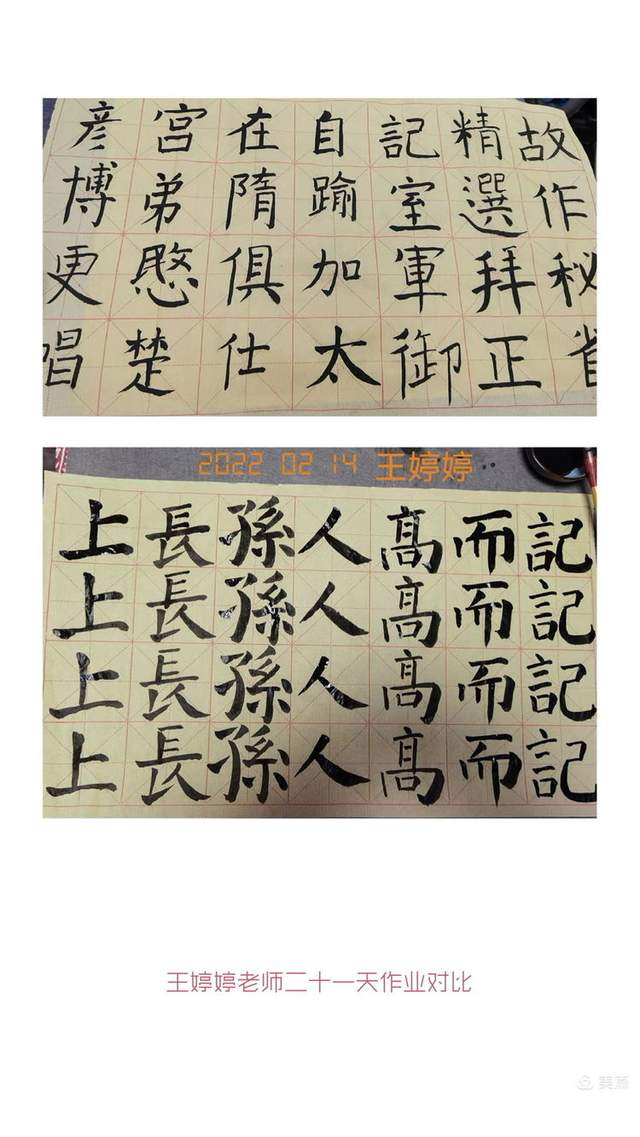 故作秘省
精選拜正
記室軍御
自踰加太
在隋俱仕
宮弟愍楚
彦博更唱
2022 02 14 王婷婷
記記記記
而而而而
髙髙髙髙
人人人人
孫孫孫孫
長長長長
上上上上
王婷婷老师二十一天作业对比
美篇